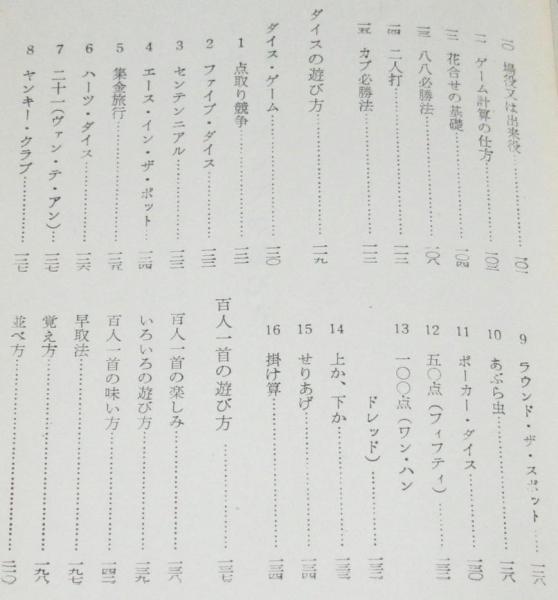 一〇 場役又は出来役……一〇一
一一 ゲーム計算の仕方……一〇三
一二 花合せの基礎……一〇四
一三 八八必勝法……一〇八
一四 二人打……一一二
一五 カブ必勝法……一一三
ダイスの遊び方……一一九
ダイス・ゲーム……一二〇
1 点取り競争……一二一
2 ファイブ・ダイス……一二二
3 センテンニアル……一二三
4 エース・イン・ザ・ポット……一二四
5 集金旅行……一二五
6 ハーツ・ダイス……一二六
7 二十一(ヴァン・テ・アン)……一二七
8 ヤンキー・クラブ……一二七
9 ラウンド・ザ・スポット……一二八
10 あぶら虫……一二八
11 ポーカー・ダイス……一三〇
12 五〇点(フィフティ)……一三一
13 一〇〇点(ワン・ハン
ドレッド)……一三二
14 上か、下か……一三三
15 せりあげ……一三四
16 掛け算……一三四
百人一首の遊び方……一三七
百人一首の楽しみ……一三八
いろいろの遊び方……一三九
百人一首の味い方……一四二
早取法……一九七
覚え方……一九八
並べ方……二一〇